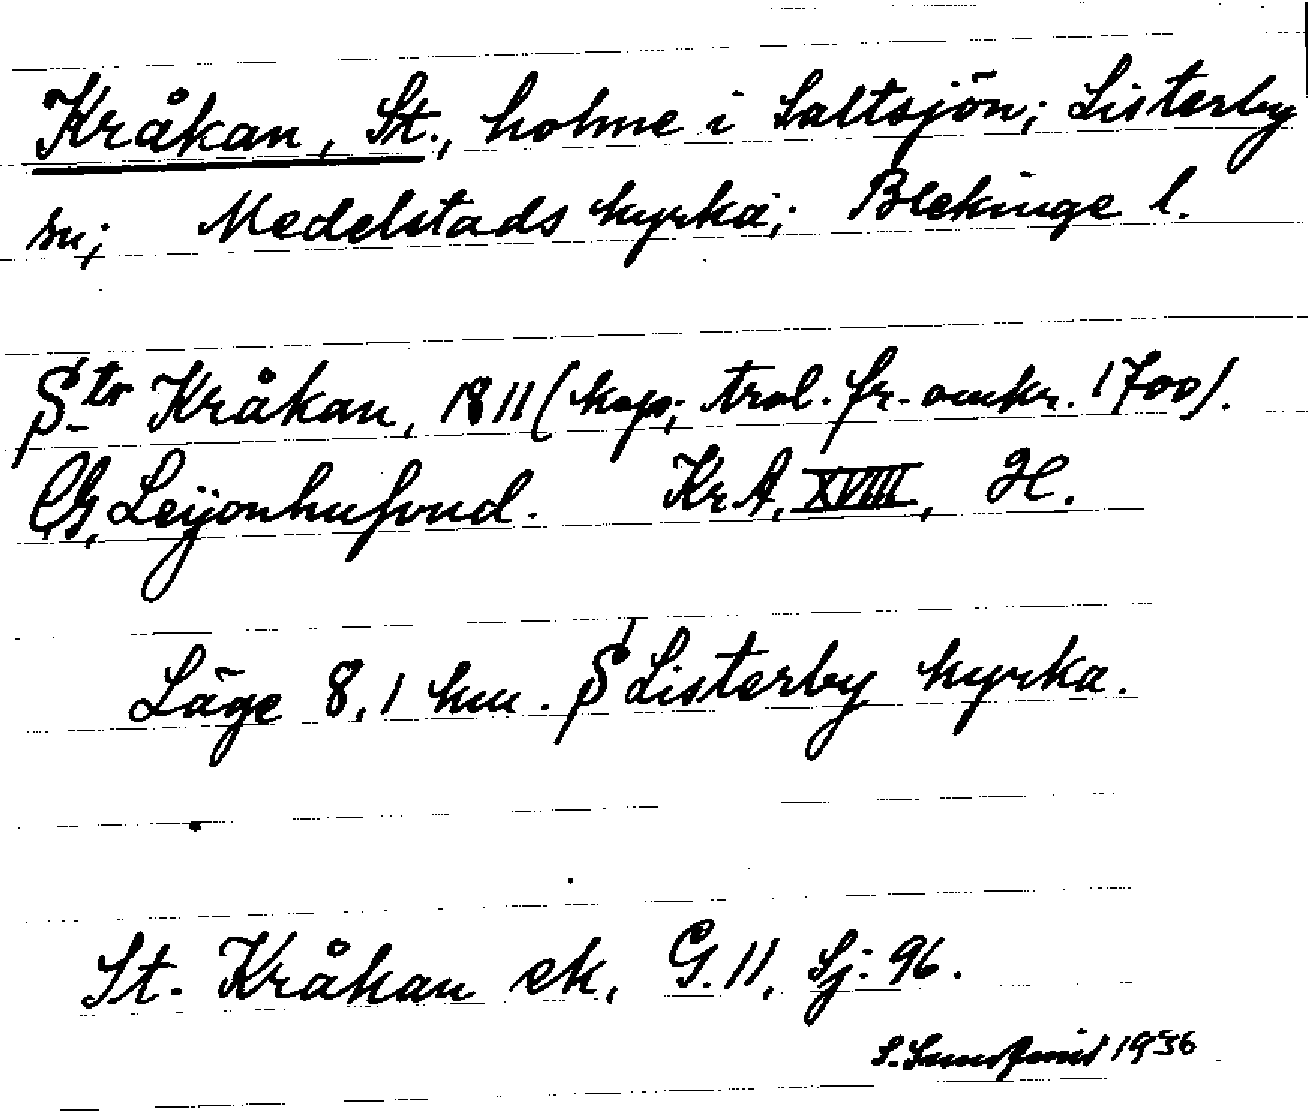 Kråkan, St., holme i Saltsjön; Listerby
sn; Medelstads kyrka; Blekinge l.
Str Kråkan, 1811 (kop; trol. fr. omkr. 1700).
CG, Leijonhufvud. Kr. A. XVIII, H.
Läge 8,1 km. S Listerby kyrka.
St. Kråkan ek, G. 11, Sj: 96.
S. 1936